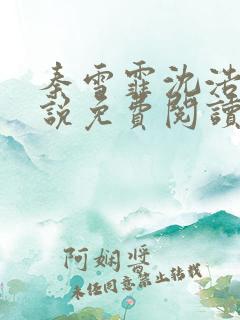 秦雪霏沈浩
說免費閱讀
阿娴醬
未经同意禁止转载